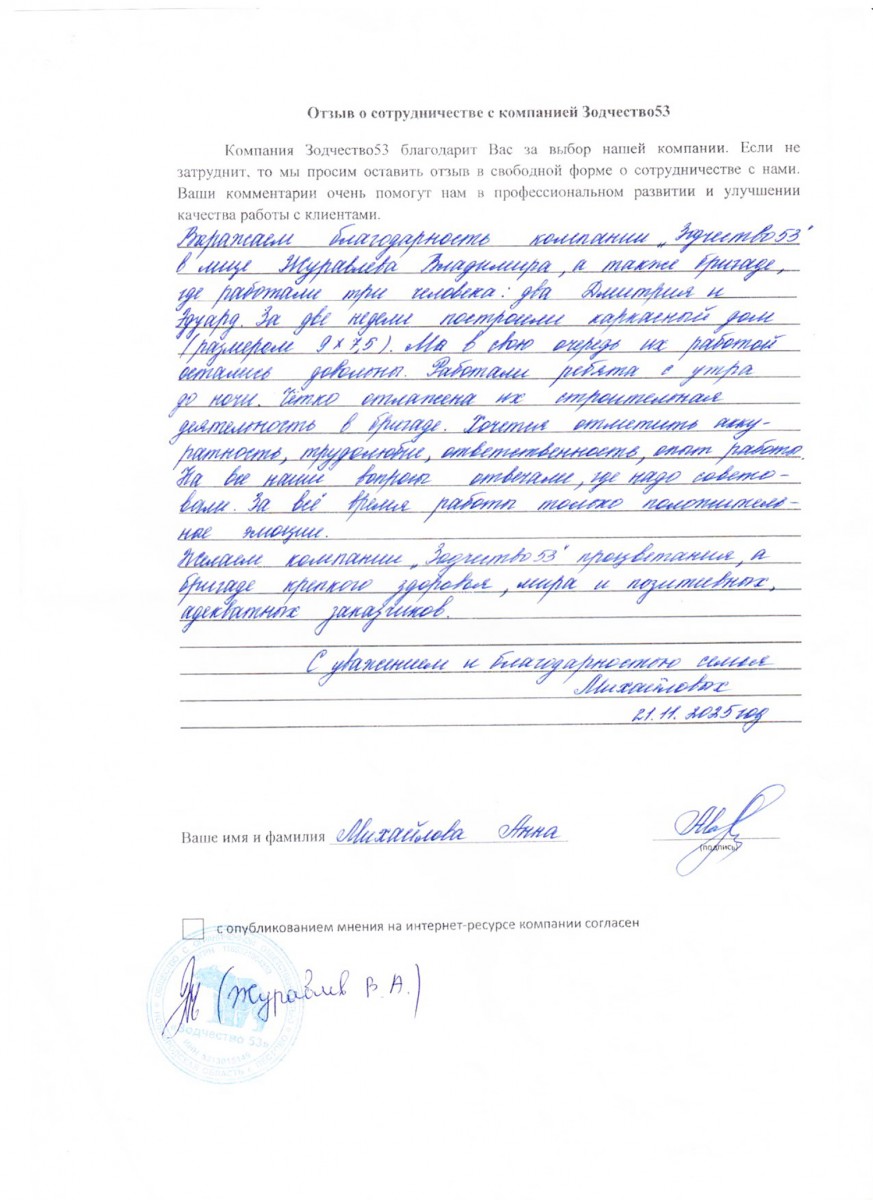 Отзыв о сотрудничестве с компанией Зодчество53
Компания Зодчество53 благодарит Вас за выбор нашей компании. Если не
затруднит, то мы просим оставить отзыв в свободной форме о сотрудничестве с нами.
Ваши комментарии очень помогут нам в профессиональном развитии и улучшении
качества работы с клиентами.
Выражаем благодарность компании „Зодчество53"
в лице Журавлёва Владимира, а также бригаде,
где работали три человека: два Дмитрия и
Эдуард. За две недели построили каркасный дом
(размером 9 х 7,5). Мы в свою очередь их работой
остались довольны. Работали ребята с утра
до ночи. Чётко отлажена их строительная
деятельность в бригаде. Хочется отметить акку-
ратность, трудолюбие, ответственность, опыт работы.
На все наши вопросы отвечали, где надо совето-
вали. За всё время работы только положитель-
ные эмоции.
Желаем компании „Зодчество53" процветания, а
бригаде крепкого здоровья, мира и позитивных,
адекватных заказчиков.
С уважением и благодарностью семья
Михайловых
21.11.2025 год
Ваше имя и фамилия Михайлова Анна
(подпись)
с опубликованием мнения на интернет-ресурсе компании согласен
(Журавлев В.А.)
Зодчество 53»